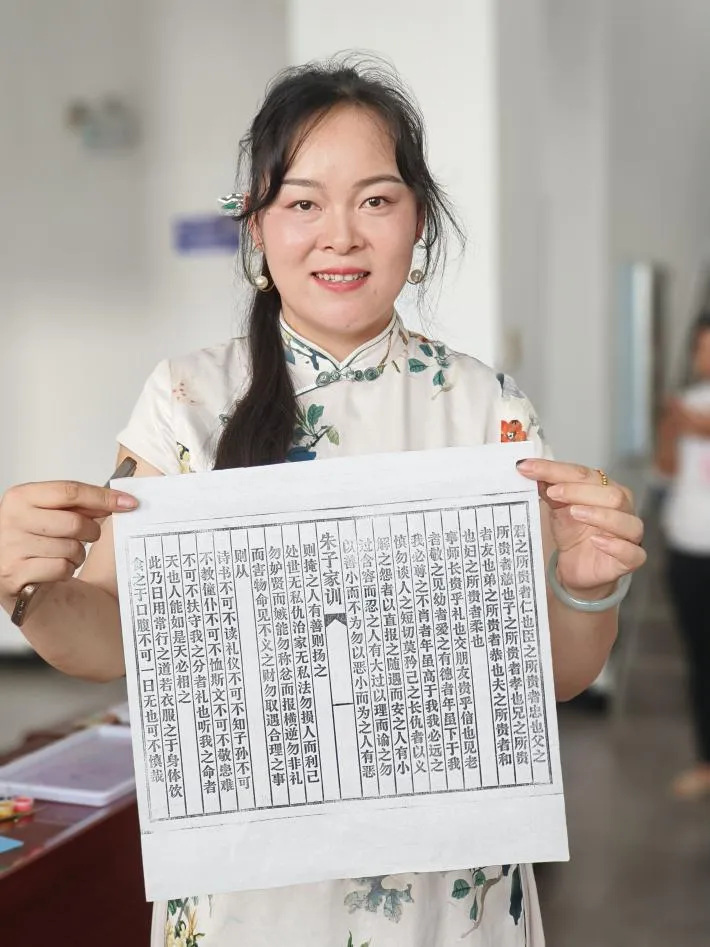 君之所贵者仁也臣之所贵者忠也父之
所贵者慈也子之所贵者孝也兄之所贵
者友也弟之所贵者恭也夫之所贵者和
也妇之所贵者柔也
事师长贵乎礼也交朋友贵乎信也见老
者敬之见幼者爱之有德者年虽下于我
我必尊之不肖者年虽高于我我必远之
慎勿谈人之短切莫矜己之长仇者以义
解之怨者以直报之随遇而安之人有小
过含容而忍之人有大过以理而谕之勿
以善小而不为勿以恶小而为之人有恶
朱子家训
则掩之人有善则扬之
处世无私仇治家无私法勿损人而利己
勿妒贤而嫉能勿称忿而报横逆勿非礼
而害物命见不义之财勿取遇合理之事
则从
诗书不可不读礼仪不可不知子孙不可
不教僮仆不可不恤斯文不可不敬患难
不可不扶守我之分者礼也听我之命者
天也人能如是天必相之
此乃日用常行之道若衣服之于身体饮
食之于口腹不可一日无也可不慎哉